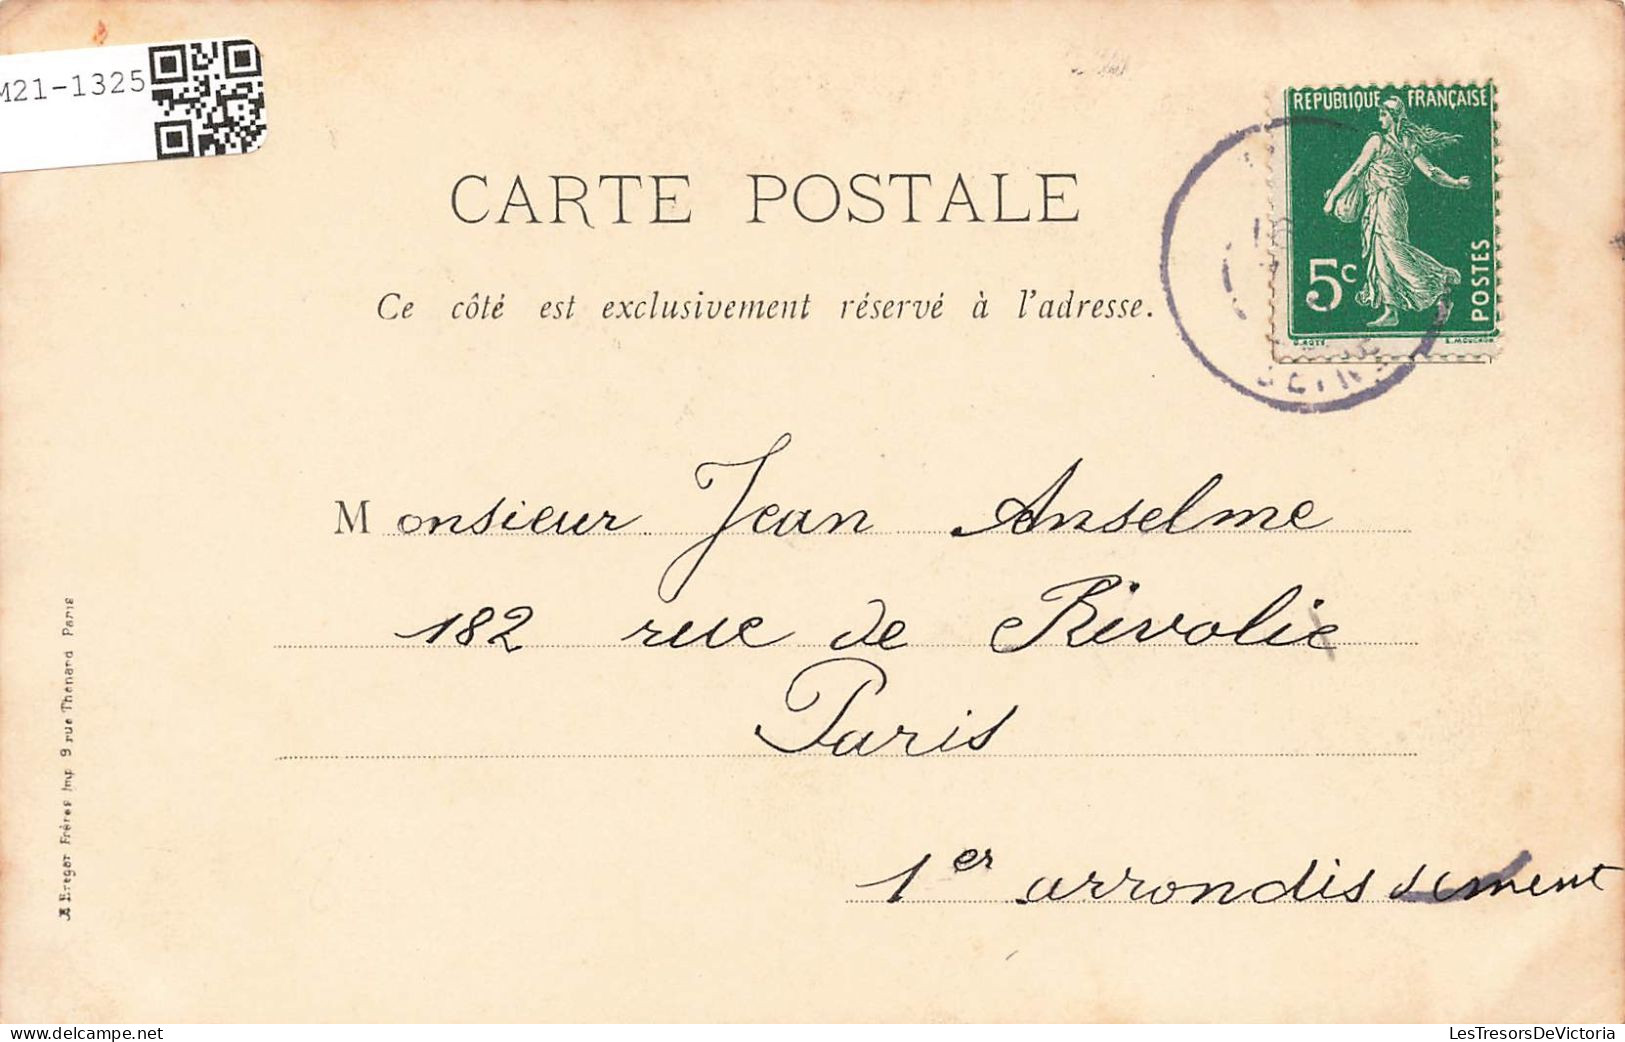 M21-1325
REPUBLIQUE FRANÇAISE
5c
POSTES
E. MOUCHON
CARTE POSTALE
Ce côté est exclusivement réservé à l'adresse.
Monsieur Jean Anselme
182 rue de Rivolie
Paris
1er arrondissement
Frères Imp 9 rue Thénard Paris
www.delcampe.net
LesTresorsDeVictoria